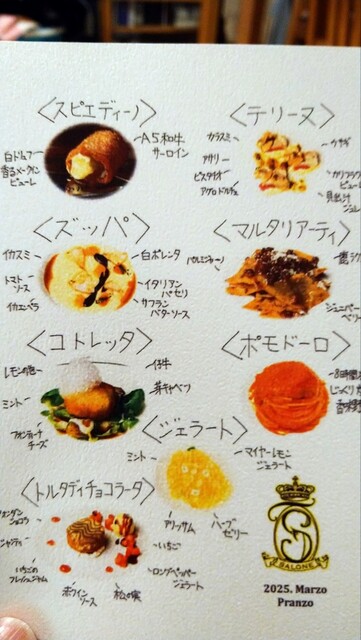 〈スピエディーノ〉
A5和牛
サーロイン
白トリュフ
香るメークイン
ピューレ
〈テリーヌ〉
カラスミ
アサリ
ピスタチオ
アグロドルチェ
ウサギ
カリフラワー
ピューレ
貝出汁
ジュレ
〈ズッパ〉
イカスミ
トマト
ソース
イカエペラ
白ポレンタ
イタリアン
パセリ
サフラン
バターソース
〈マルタリアーティ〉
パルミジャーノ
鹿ラグー
ジュニパー
ベリー
〈コトレッタ〉
レモンの泡
ミント
フォンティーナ
チーズ
仔牛
芽キャベツ
〈ポモドーロ〉
8時間
じっくり
〈ジェラート〉
ミント
マイヤーレモン
ジェラート
アリッサム
ハーブ
ゼリー
〈トルタディチョコラータ〉
ショコラ
いちごの
フレッシュジャム
赤ワイン
ソース
松の実
いちご
ロングペッパー
ジェラート
SALONE
2025. Marzo
Pranzo